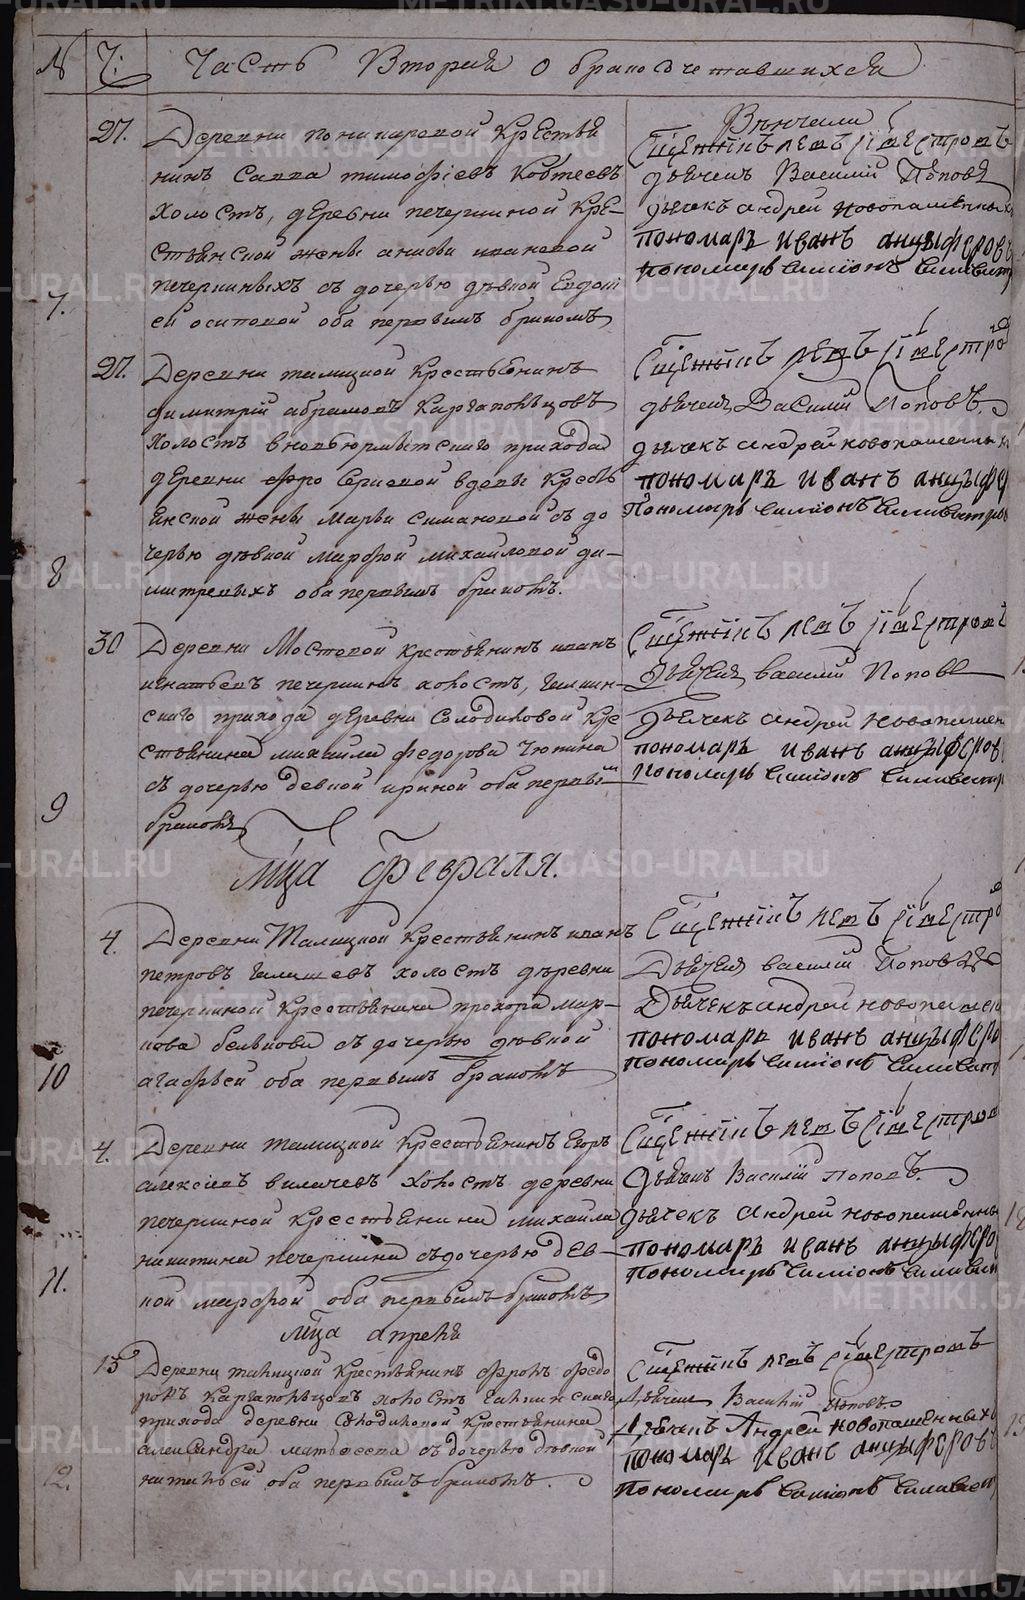 № Ч: Часть Вторая о бракосочетавшихся
Венчали
27. Деревни понамаревой Крестья
нинъ Савва тимофіевъ Коктеевъ
холостъ, деревни печеркиной Кре-
стьянской жены ивановой
7. печеркиныхъ съ дочерью девкой Евдокі
ей осиповой оба первымъ бракомъ
Священникъ левъ сілвестровъ
дьячекъ Василий Поповъ
дьячекъ андрей новопашенныхъ
пономарь иванъ анцыферовъ
пономарь симіонъ силивестр
27. Деревни талицкой Крестьянинъ
димитрій абрамовъ Каргапольцовъ
холостъ приходу
деревни вдовы Кресть
янской жены марьи симановой съ до
8 черью девкой марфой михайловой ди-
митревыхъ оба первымъ бракомъ.
Священникъ левъ сілвестро
дьячекъ Василий Поповъ.
дьячекъ андрей новопашенны
пономарь иванъ анцыфе
Пономарь симіонъ силивестров
30 Деревни Мостовой крестьянинъ иванъ
игнатьевъ печеркинъ холостъ, галкин-
скаго прихода деревни Солодиловой кре
стьянина михаила федорова Тюнина
9 съ дочерью девкой ириной оба первым
бракомъ
Священникъ левъ сілвестровъ
дьячекъ василий Поповъ
дьячекъ андрей новопашен
пономарь иванъ анцыферов
пономарь симіонъ силивестр
Мца Февраля.
4. Деревни Талицкой крестьянинъ иванъ
петровъ холостъ деревни
печеркиной крестьянина прохора мар-
кова съ дочерью девкой
10 агафьей оба первымъ бракомъ
Священникъ левъ сілвестро
Дьячекъ василий Поповъ
Дьячекъ андрей новопашен
пономарь иванъ анцыферо
пономарь симіонъ силивест
4. Деревни талицкой Крестьянинъ Егоръ
алексіевъ холостъ деревни
печеркиной крестьянина михайла
никитина печеркина съ дочерью дев-
11. кой марфой оба первымъ бракомъ
Священникъ левъ сілвестров
дьячекъ Василий поповъ.
дьячекъ андрей новопашенны
пономарь иванъ анцыферо
пономарь симіонъ силивест
мца апреля
13 Деревни талицкой Крестьянинъ федо
ровъ Каргапольцовъ холостъ Галкинскаго
прихода деревни Солодиловой Крестьянина
александра матвеева съ дочерью девкой
12. натальей оба первымъ бракомъ.
Священникъ левъ сілвестровъ
дьячекъ Василий Поповъ
дьячекъ Андрей новопашенныхъ
пономарь иванъ анцыферовъ
пономарь симіонъ силивест
METRIKI.GASO-URAL.RU